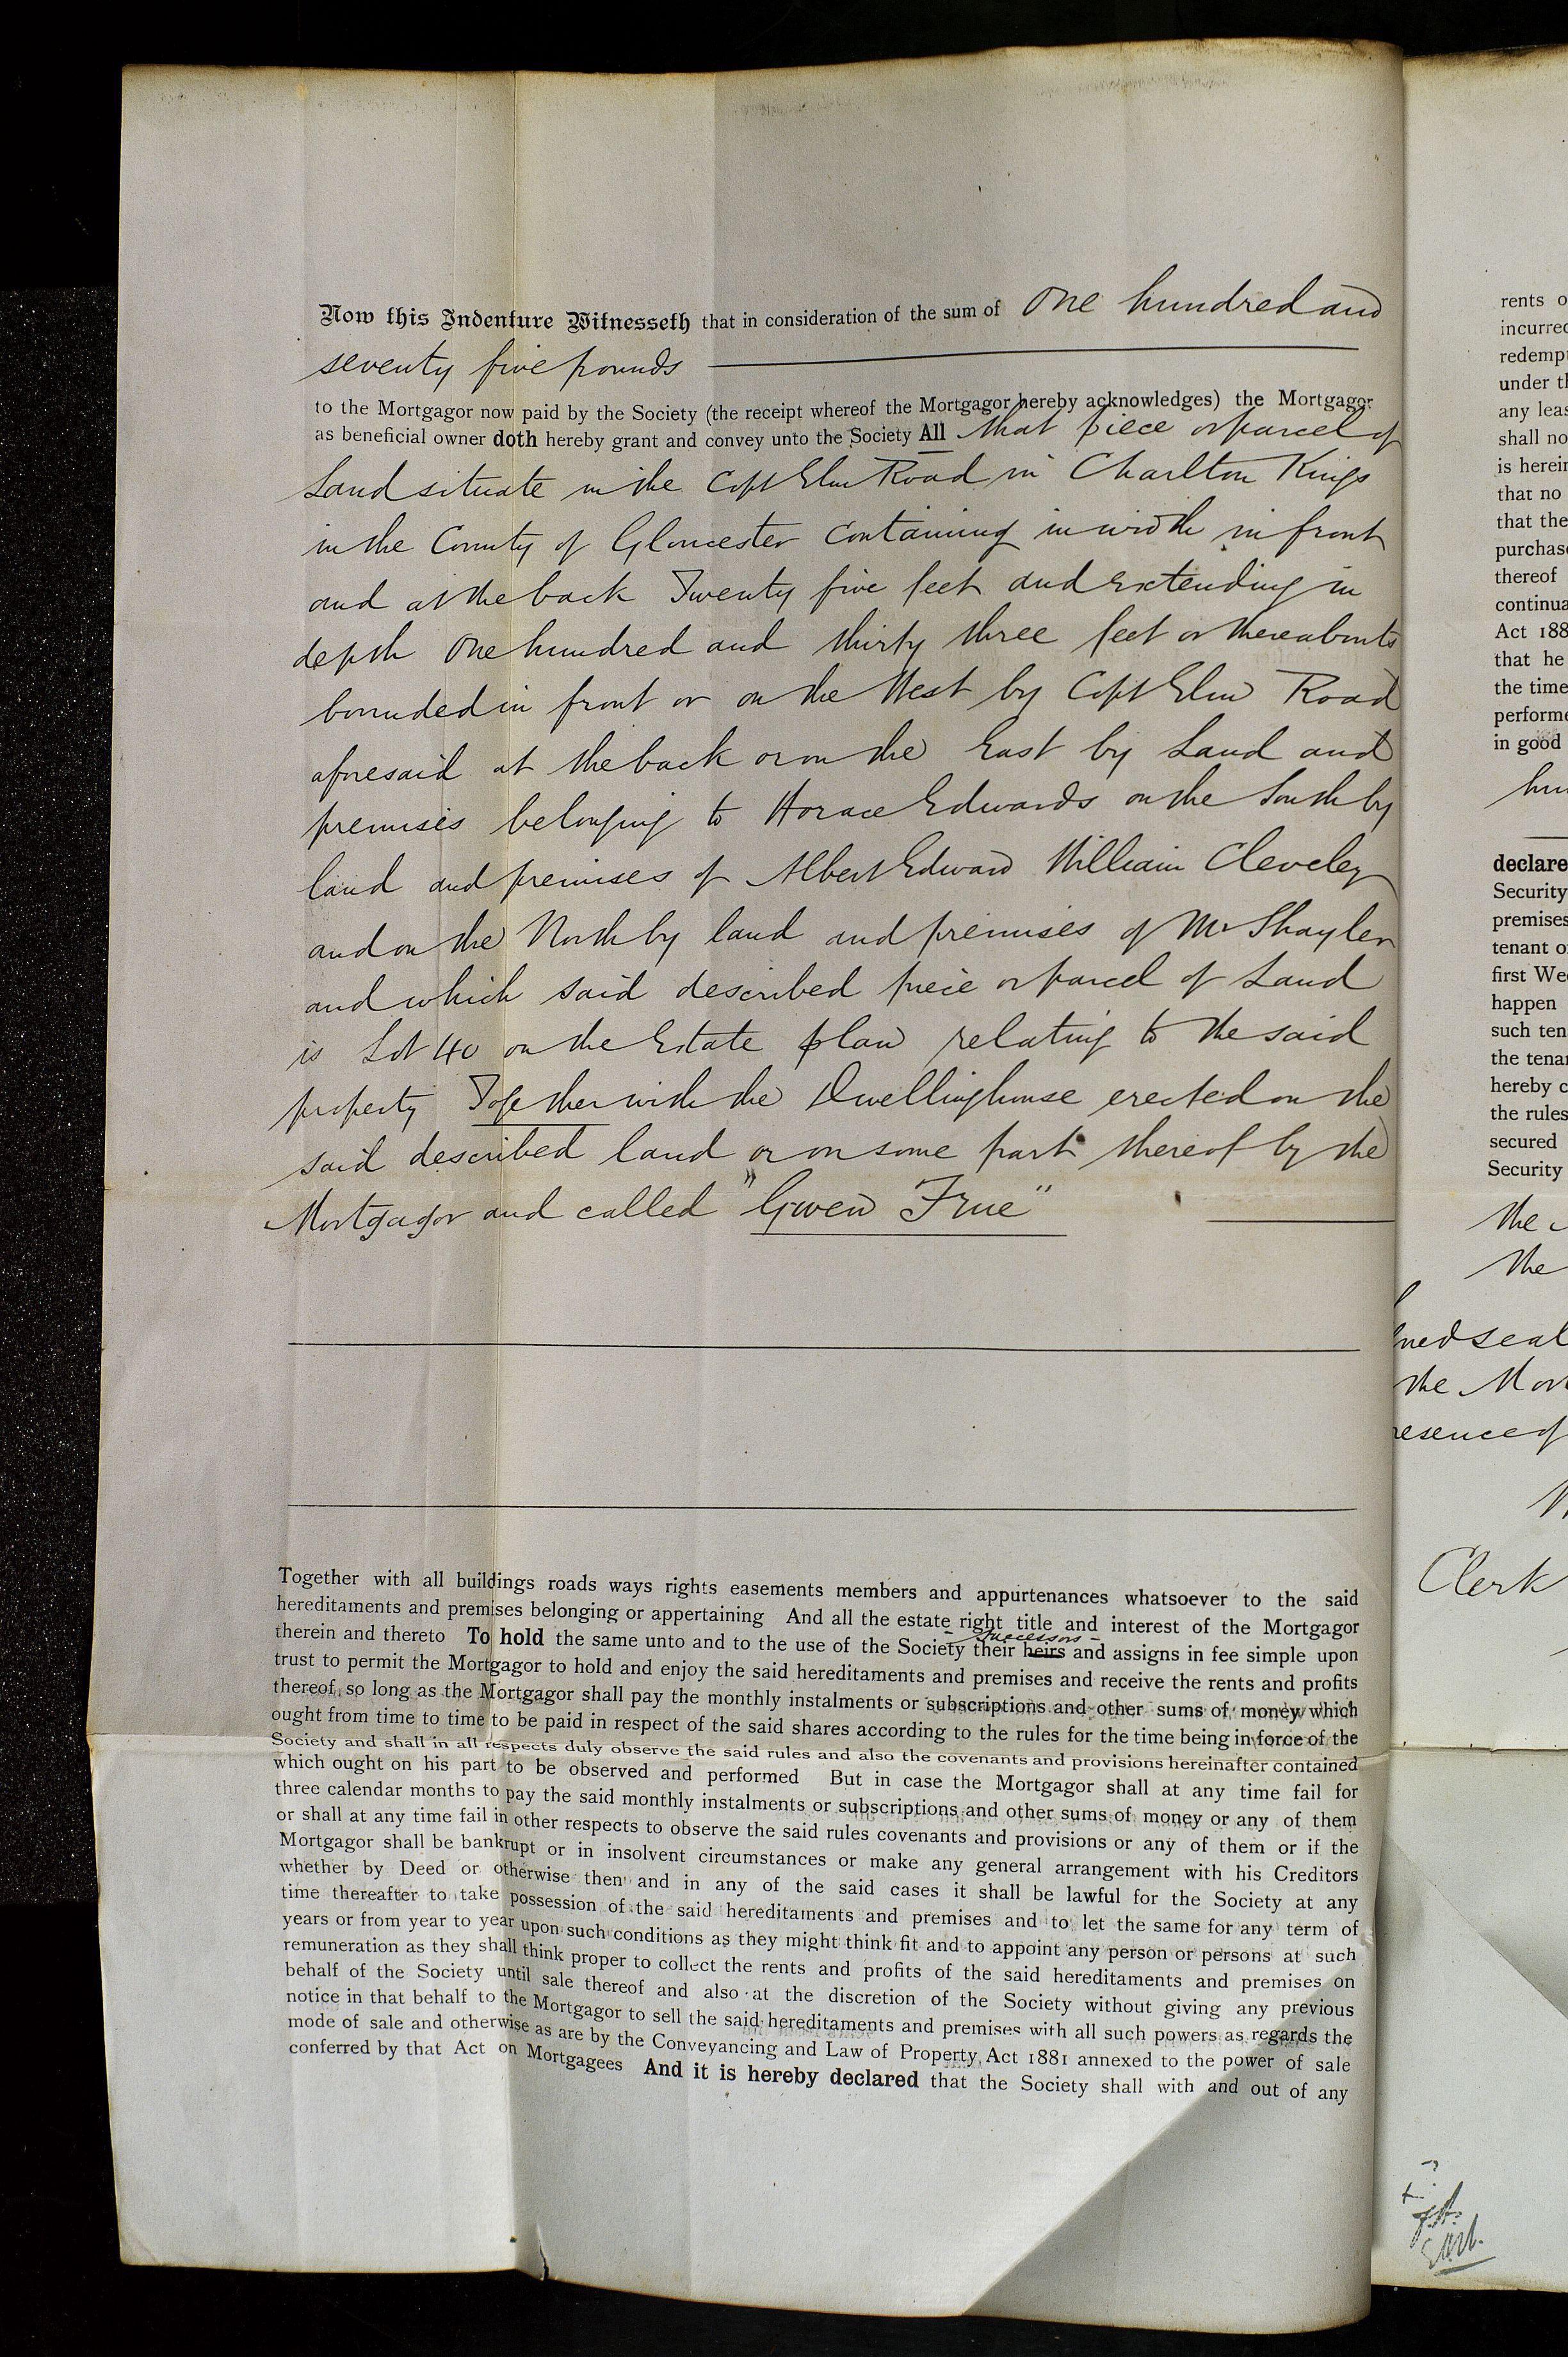 Now this Indenture Witnesseth that in consideration of the sum of One hundred and
seventy five pounds
to the Mortgagor now paid by the Society (the receipt whereof the Mortgagor hereby acknowledges) the Mortgagor
as beneficial owner doth hereby grant and convey unto the Society All that piece or parcel of
Land situate in the Copt Elm Road in Charlton Kings
in the County of Gloucester containing in width in front
and at the back Twenty five feet and extending in
depth One hundred and thirty three feet or thereabouts
bounded in front or on the West by Copt Elm Road
aforesaid at the back or on the East by Land and
premises belonging to Horace Edwards on the South by
land and premises of Albert Edward William Cleveley
and on the North by land and premises of Mr Shayler
and which said described piece or parcel of Land
is Lot 40 on the Estate plan relating to the said
property Together with the Dwellinghouse erected on the
said described land or on some part thereof by the
Mortgagor and called "Gwen Frue"
Together with all buildings roads ways rights easements members and appurtenances whatsoever to the said
hereditaments and premises belonging or appertaining And all the estate right title and interest of the Mortgagor
successors
therein and thereto To hold the same unto and to the use of the Society their heirs and assigns in fee simple upon
trust to permit the Mortgagor to hold and enjoy the said hereditaments and premises and receive the rents and profits
thereof so long as the Mortgagor shall pay the monthly instalments or subscriptions and other sums of money which
ought from time to time to be paid in respect of the said shares according to the rules for the time being in force of the
Society and shall in all respects duly observe the said rules and also the covenants and provisions hereinafter contained
which ought on his part to be observed and performed But in case the Mortgagor shall at any time fail for
three calendar months to pay the said monthly instalments or subscriptions and other sums of money or any of them
or shall at any time fail in other respects to observe the said rules covenants and provisions or any of them or if the
Mortgagor shall be bankrupt or in insolvent circumstances or make any general arrangement with his Creditors
whether by Deed or otherwise then and in any of the said cases it shall be lawful for the Society at any
time thereafter to take possession of the said hereditaments and premises and to let the same for any term of
years or from year to year upon such conditions as they might think fit and to appoint any person or persons at such
remuneration as they shall think proper to collect the rents and profits of the said hereditaments and premises on
behalf of the Society until sale thereof and also at the discretion of the Society without giving any previous
notice in that behalf to the Mortgagor to sell the said hereditaments and premises with all such powers as regards the
mode of sale and otherwise as are by the Conveyancing and Law of Property Act 1881 annexed to the power of sale
conferred by that Act on Mortgagees And it is hereby declared that the Society shall with and out of any
rents o
incurred
redemp
under th
any leas
shall no
is herein
that no
that the
purchase
thereof
continua
Act 188
that he
the time
performe
in good
declare
Security
premises
tenant o
first We
happen
such ten
the tena
hereby c
the rules
secured
Security
the
the
ned seal
the Mor
resence of
Clerk